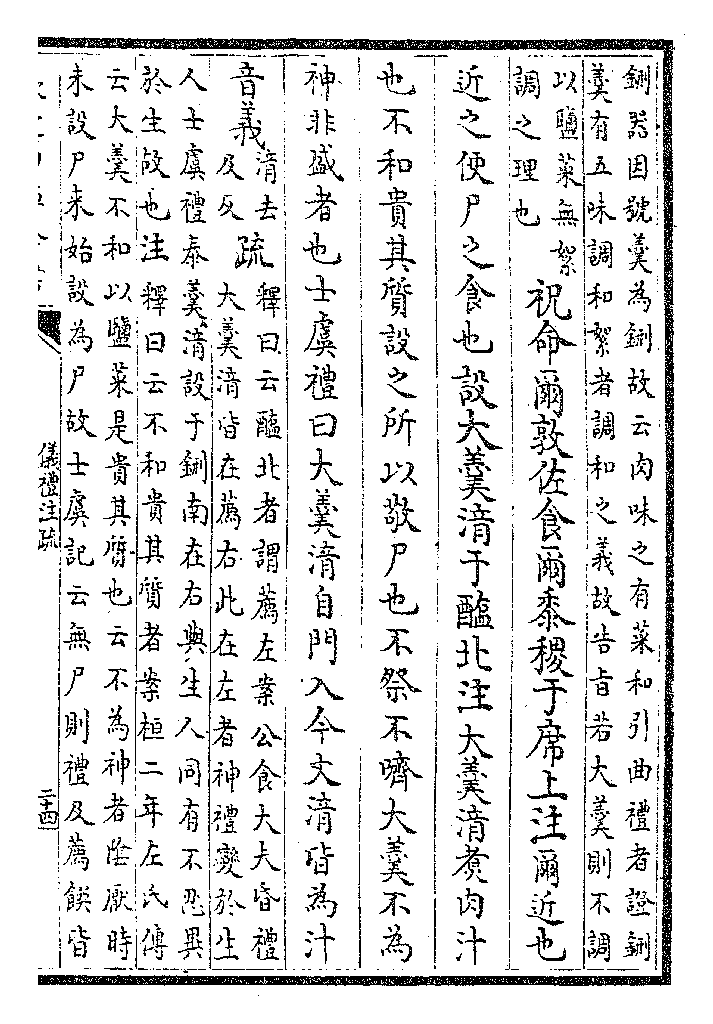 鉶器因號羹為鉶故云肉味之有菜和引曲禮者證鉶
羹有五味調和絮者調和之義故告旨若大羹則不調
以鹽菜無絮
調之理也
祝命爾敦佐食爾黍稷于席上注爾近也
近之便尸之食也設大羹湆于醢北注大羹湆煑肉汁
也不和貴其質設之所以敬尸也不祭不嚌大羹不為
神非盛者也士虞禮曰大羹湆自門入今文湆皆為汁
音義
湆去
及反
疏
釋曰云醢北者謂薦左案公食大夫昏禮
大羹湆皆在薦右此在左者神禮變於生
人士虞禮泰羹湆設于鉶南在右與生人同有不忍異
於生故也注釋曰云不和貴其質者案桓二年左氏傳
云大羹不和以鹽菜是貴其質也云不為神者陰厭時
未設尸来始設為尸故士虞記云無尸則禮及薦饌皆
儀禮注疏
二十四